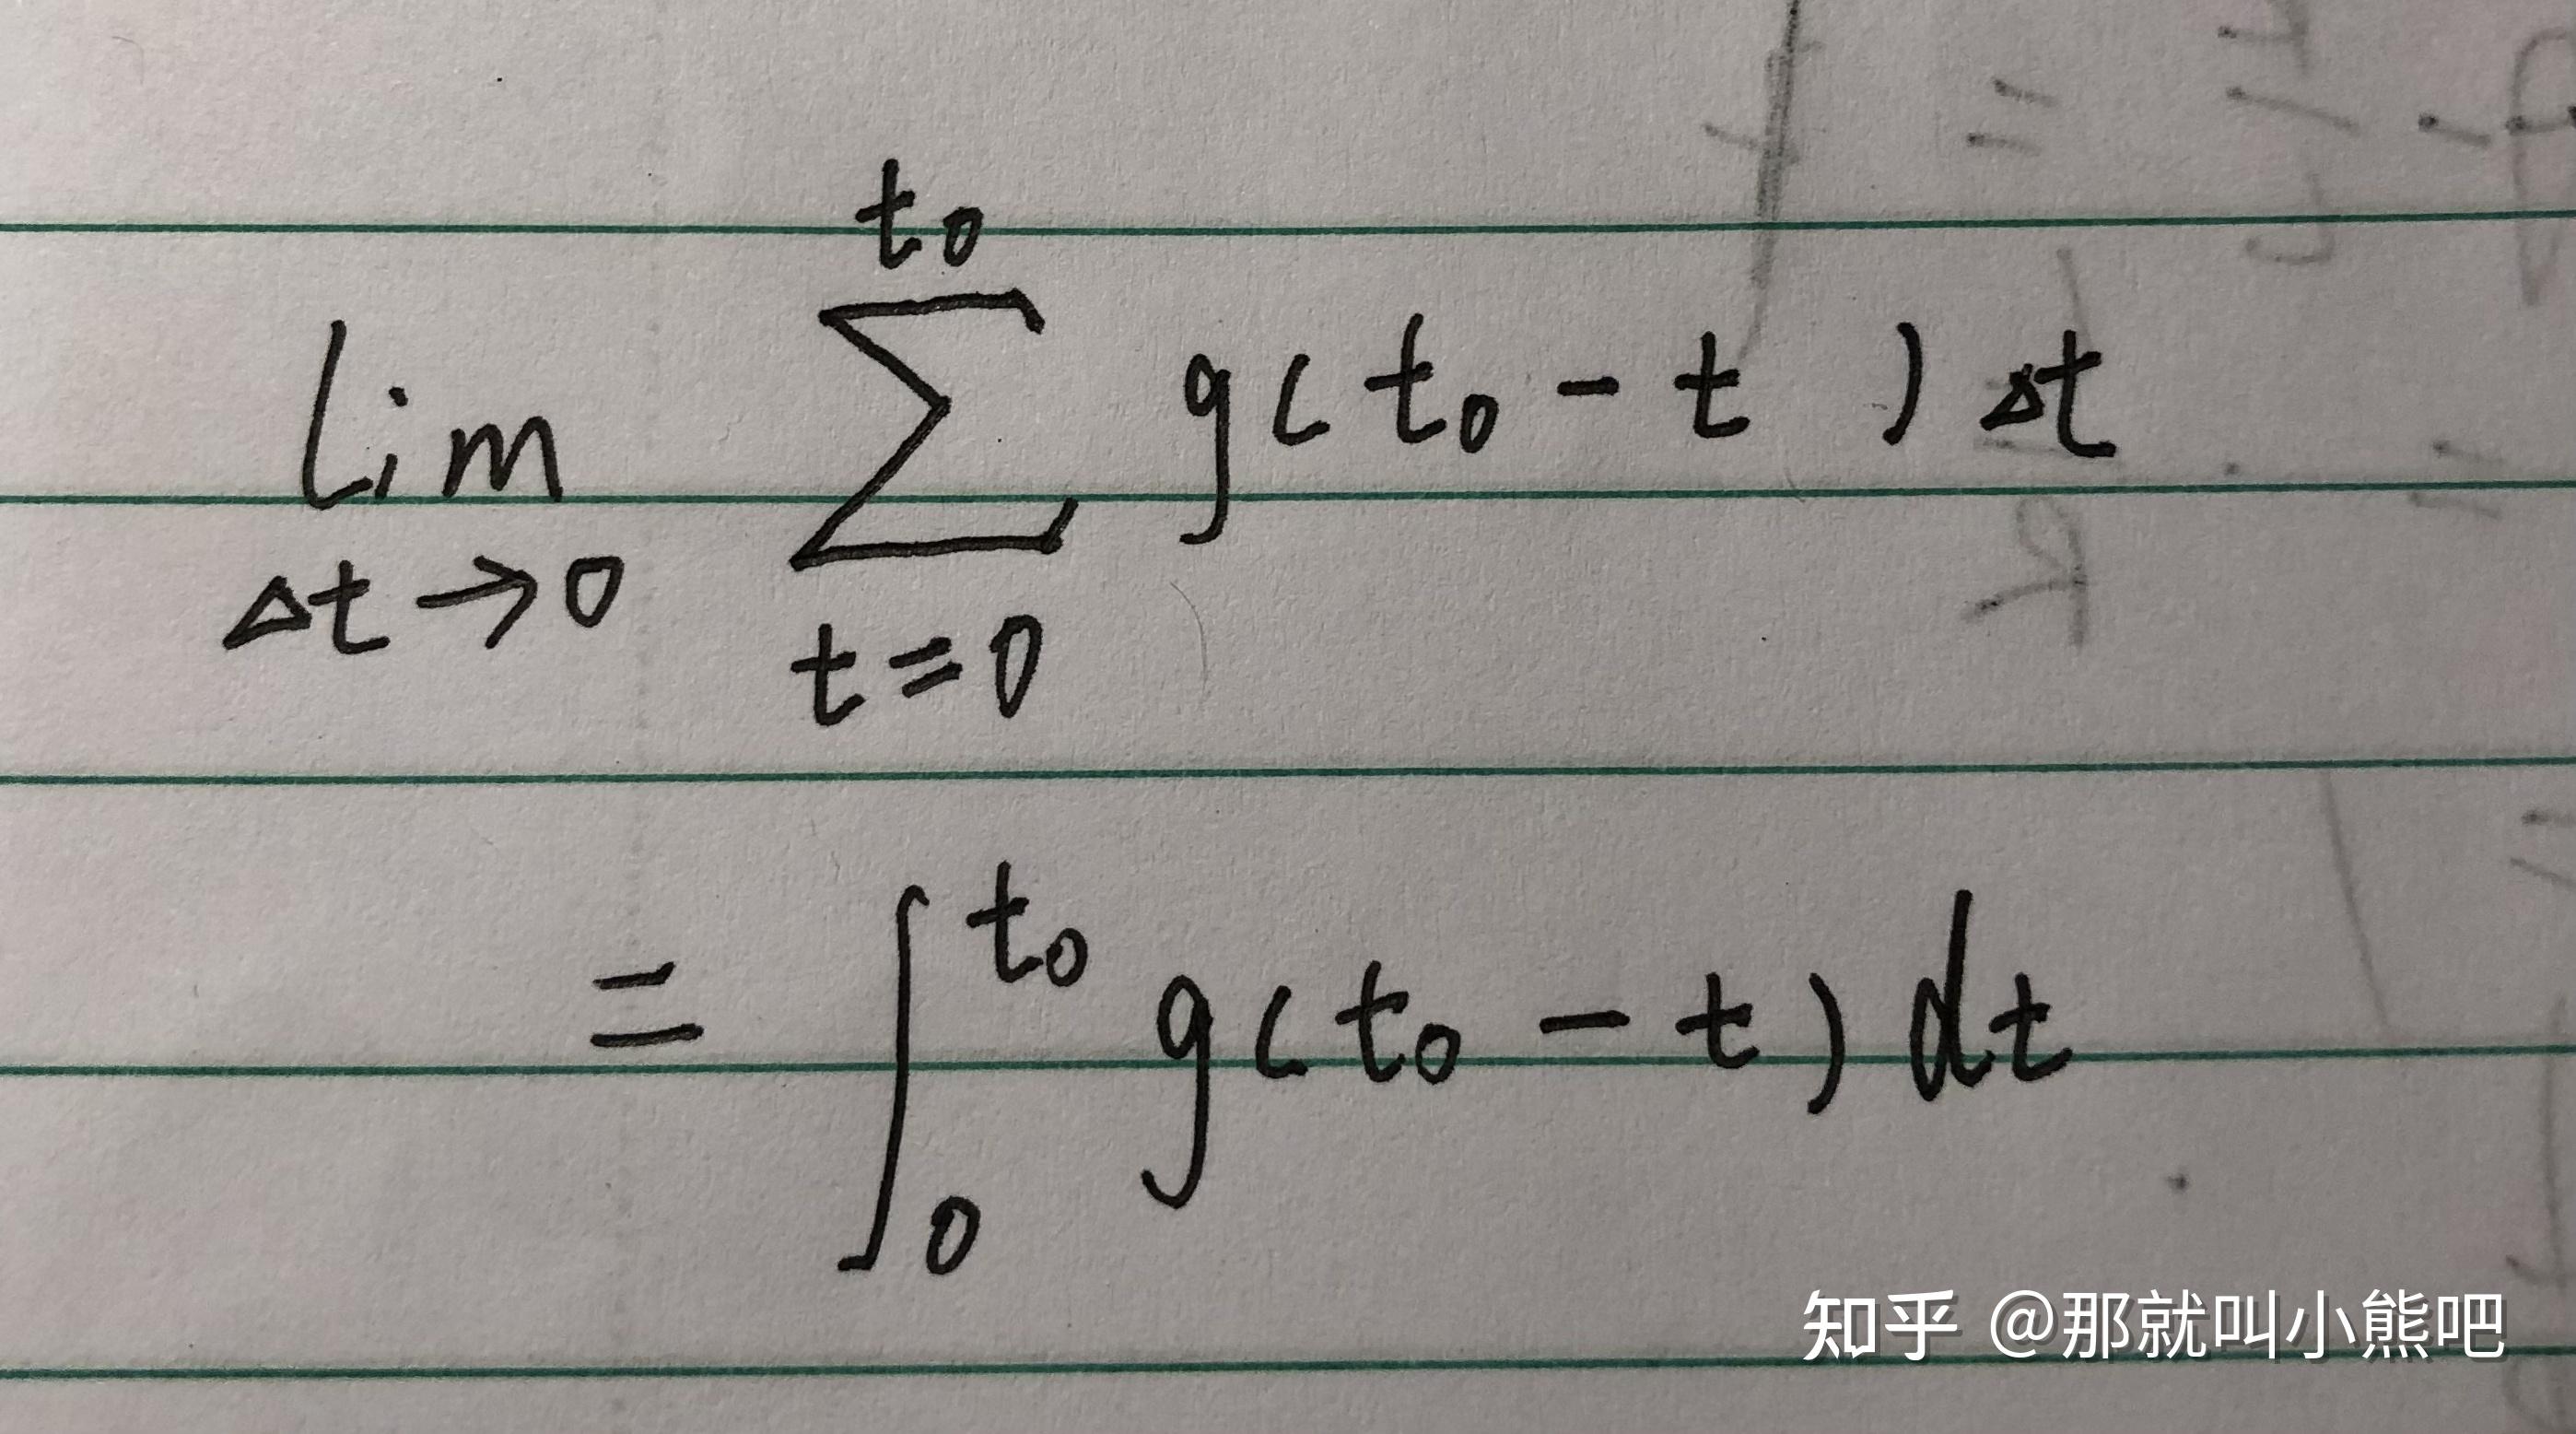 lim Δt→0 ∑ t=0 t₀ g(t₀ - t) Δt
= ∫₀ t₀ g(t₀ - t) dt
知乎 @那就叫小熊吧